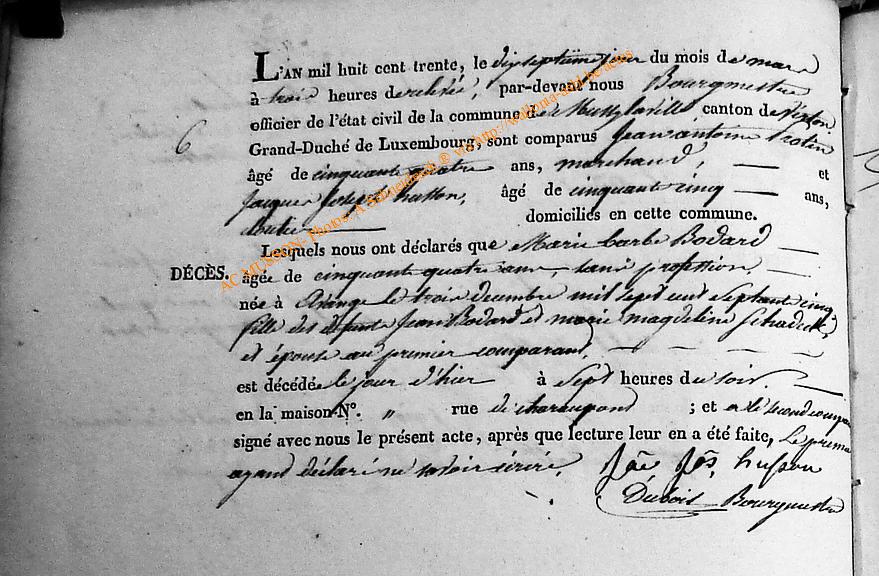 L'AN mil huit cent trente, le dixseptième jour du mois de mars
à trois heures de relevée, par-devant nous Bourgmestre
officier de l'état civil de la commune de Mussylaville canton de Virton,
6
Grand-Duché de Luxembourg, sont comparus Jean antoine
âgé de cinquante quatre ans, marchand, et
Jacques Joseph husson, âgé de cinquante cinq ans,
domiciliés en cette commune.
Lesquels nous ont déclarés que Marie barbe Bodard
DÉCÈS.
âgée de cinquante quatre ans, sans profession,
née à le trois decembre mil sept cent septante cinq
fille des défunts Jean Bodard et marie magdeleine
et épouse au premier comparant,
est décédée le jour d'hier à sept heures du soir.
en la maison N°. " rue de ; et a le second compar
signé avec nous le présent acte, après que lecture leur en a été faite, le premier
ayant déclaré ne savoir écrire. husson
Dubois Bourgmestre
AC MUSSON- Photos: A Schneideresch @ via http://wallonia-asbl.be-actes